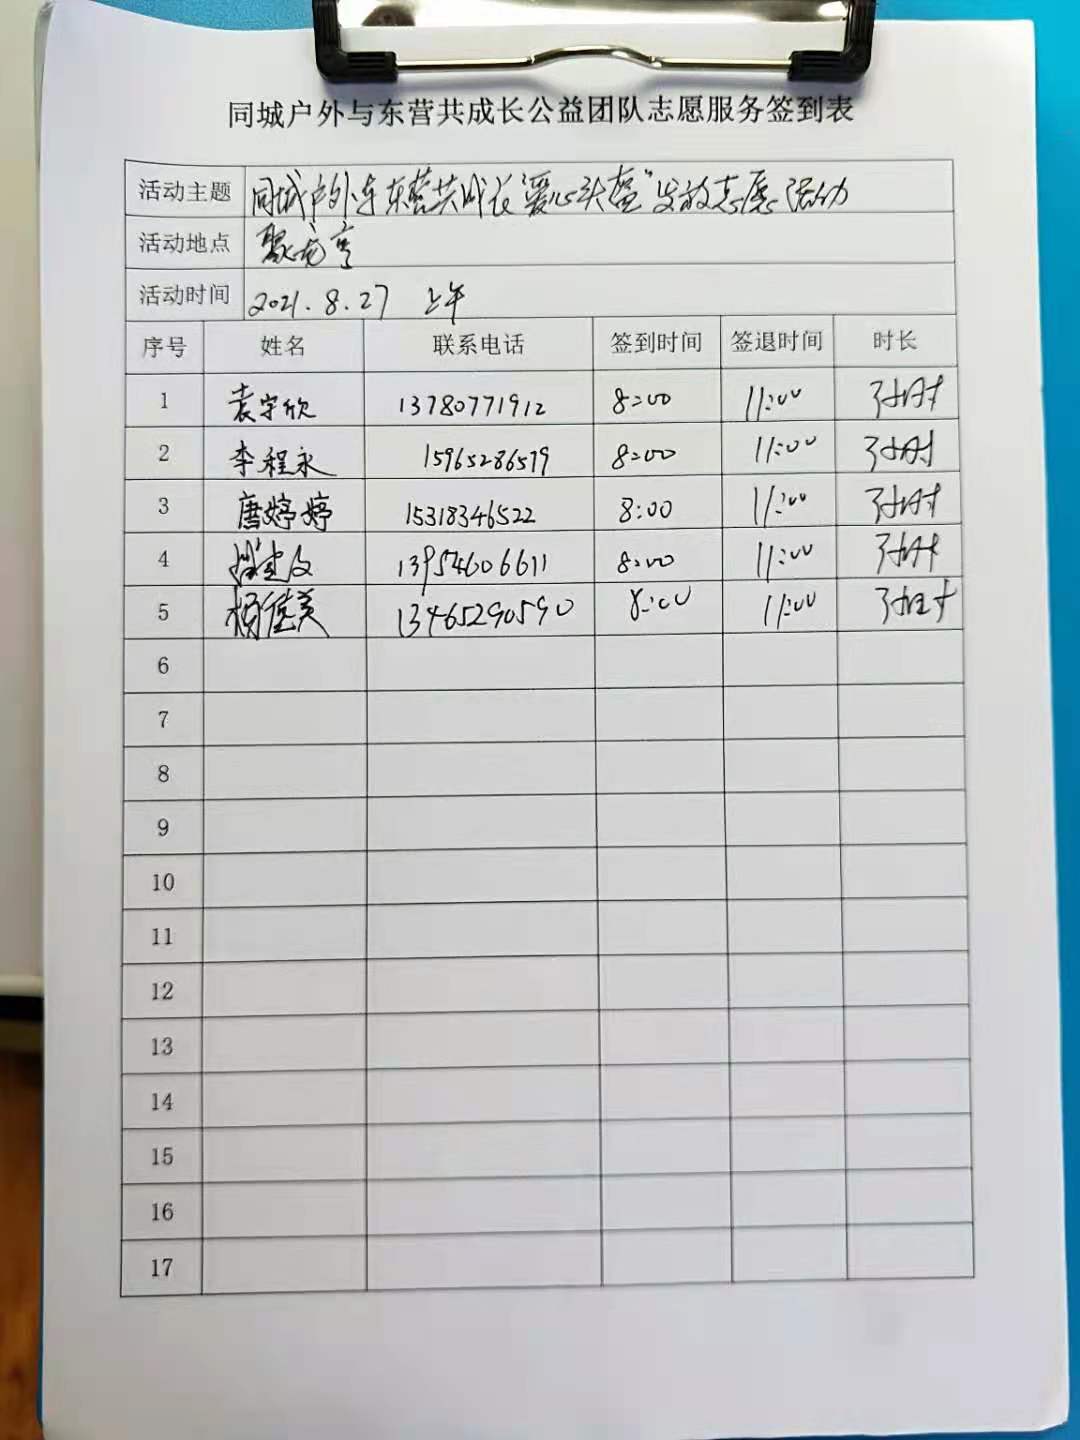 同城户外与东营共成长公益团队志愿服务签到表
活动主题 同城户外与东营共成长"爱心头盔"发放志愿活动
活动地点 聚龙亨
活动时间 2021.8.27 上午
序号 姓名 联系电话 签到时间 签退时间 时长
1 袁宇欣 13780771912 8:00 11:00 3小时
2 李程永 15965286519 8:00 11:00 3小时
3 唐婷婷 15318346522 8:00 11:00 3小时
4 13954606611 8:00 11:00 3小时
5 杨德美 13465290590 8:00 11:00 3小时
6
7
8
9
10
11
12
13
14
15
16
17